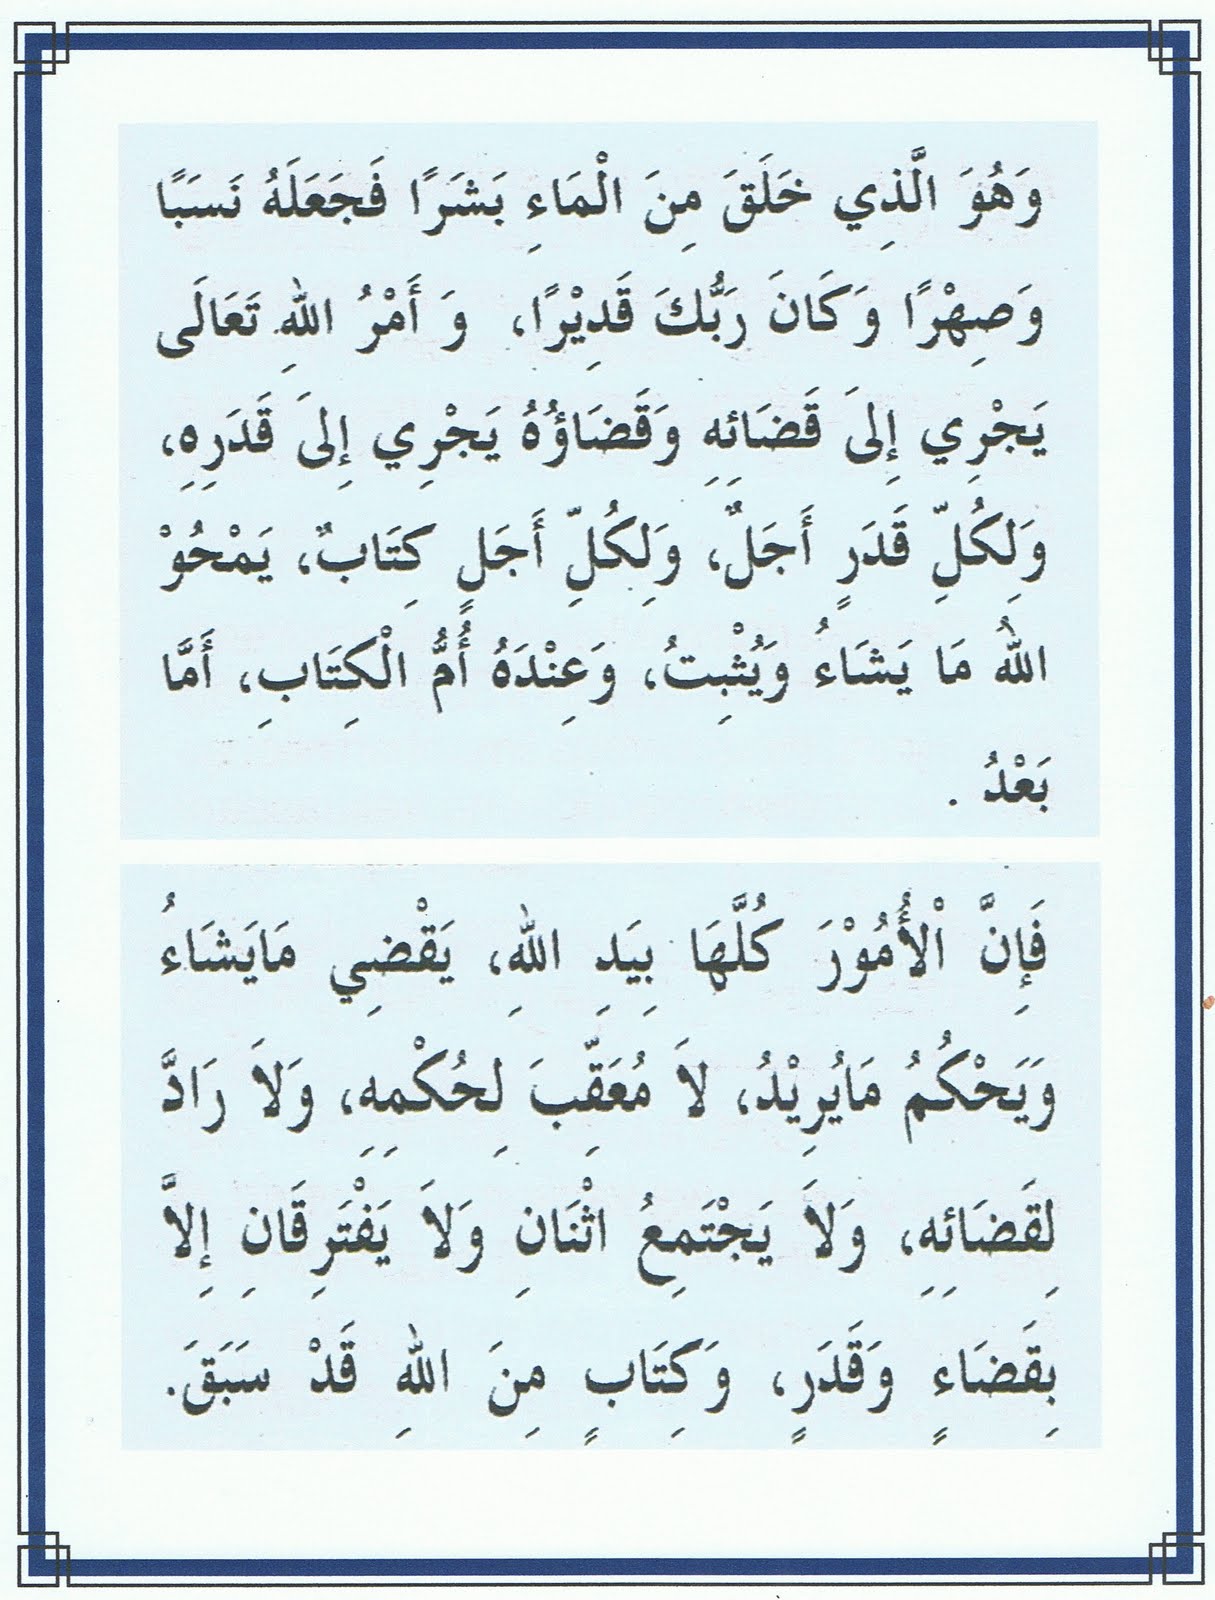 وَهُوَ الَّذِي خَلَقَ مِنَ الْمَاءِ بَشَرًا فَجَعَلَهُ نَسَبًا
وَصِهْرًا وَكَانَ رَبُّكَ قَدِيْرًا، وَ أَمْرُ اللهِ تَعَالَى
يَجْرِي إِلىَ قَضَائِهِ وَقَضَاؤُهُ يَجْرِي إِلىَ قَدَرِهِ،
وَلِكُلِّ قَدَرٍ أَجَلٌ، وَلِكُلِّ أَجَلٍ كِتَابٌ، يَمْحُوْ
اللهُ مَا يَشَاءُ وَيُثْبِتُ، وَعِنْدَهُ أُمُّ الْكِتَابِ، أَمَّا
بَعْدُ .
فَإِنَّ اْلأُمُوْرَ كُلَّهَا بِيَدِ اللهِ، يَقْضِي مَايَشَاءُ
وَيَحْكُمُ مَايُرِيْدُ، لاَ مُعَقِّبَ لِحُكْمِهِ، وَلاَ رَادَّ
لِقَضَائِهِ، وَلاَ يَجْتَمِعُ اثْنَانِ وَلاَ يَفْتَرِقَانِ إِلاَّ
بِقَضَاءٍ وَقَدَرٍ، وَكِتَابٍ مِنَ اللهِ قَدْ سَبَقَ.